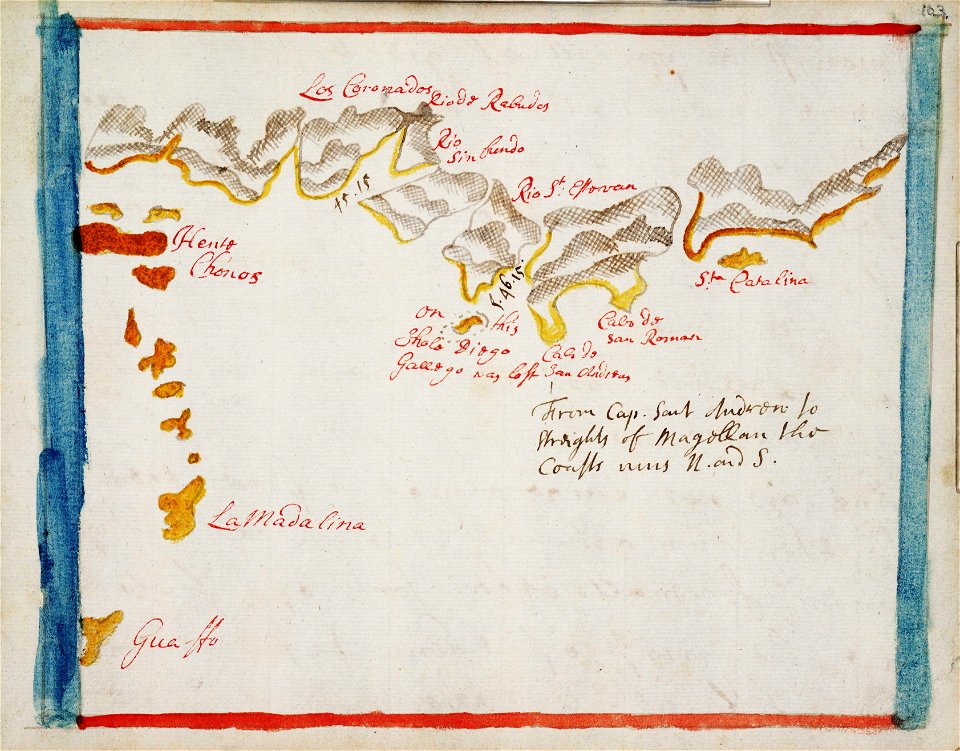 103.
Los Coronados
Rio de Rabudos
Rio
Sin fundo
45.15
Rio St. Estevan
Sta Catalina
Hente
Chonos
S. 46.15.
on this
Shole Diego
Gallego was lost
Cabo de
San Roman
Cabo de
San Andreas
From Cap. Saint Andrew to
streights of Magellan the
Coasts runs N. and S.
La Madalina
Guaffo